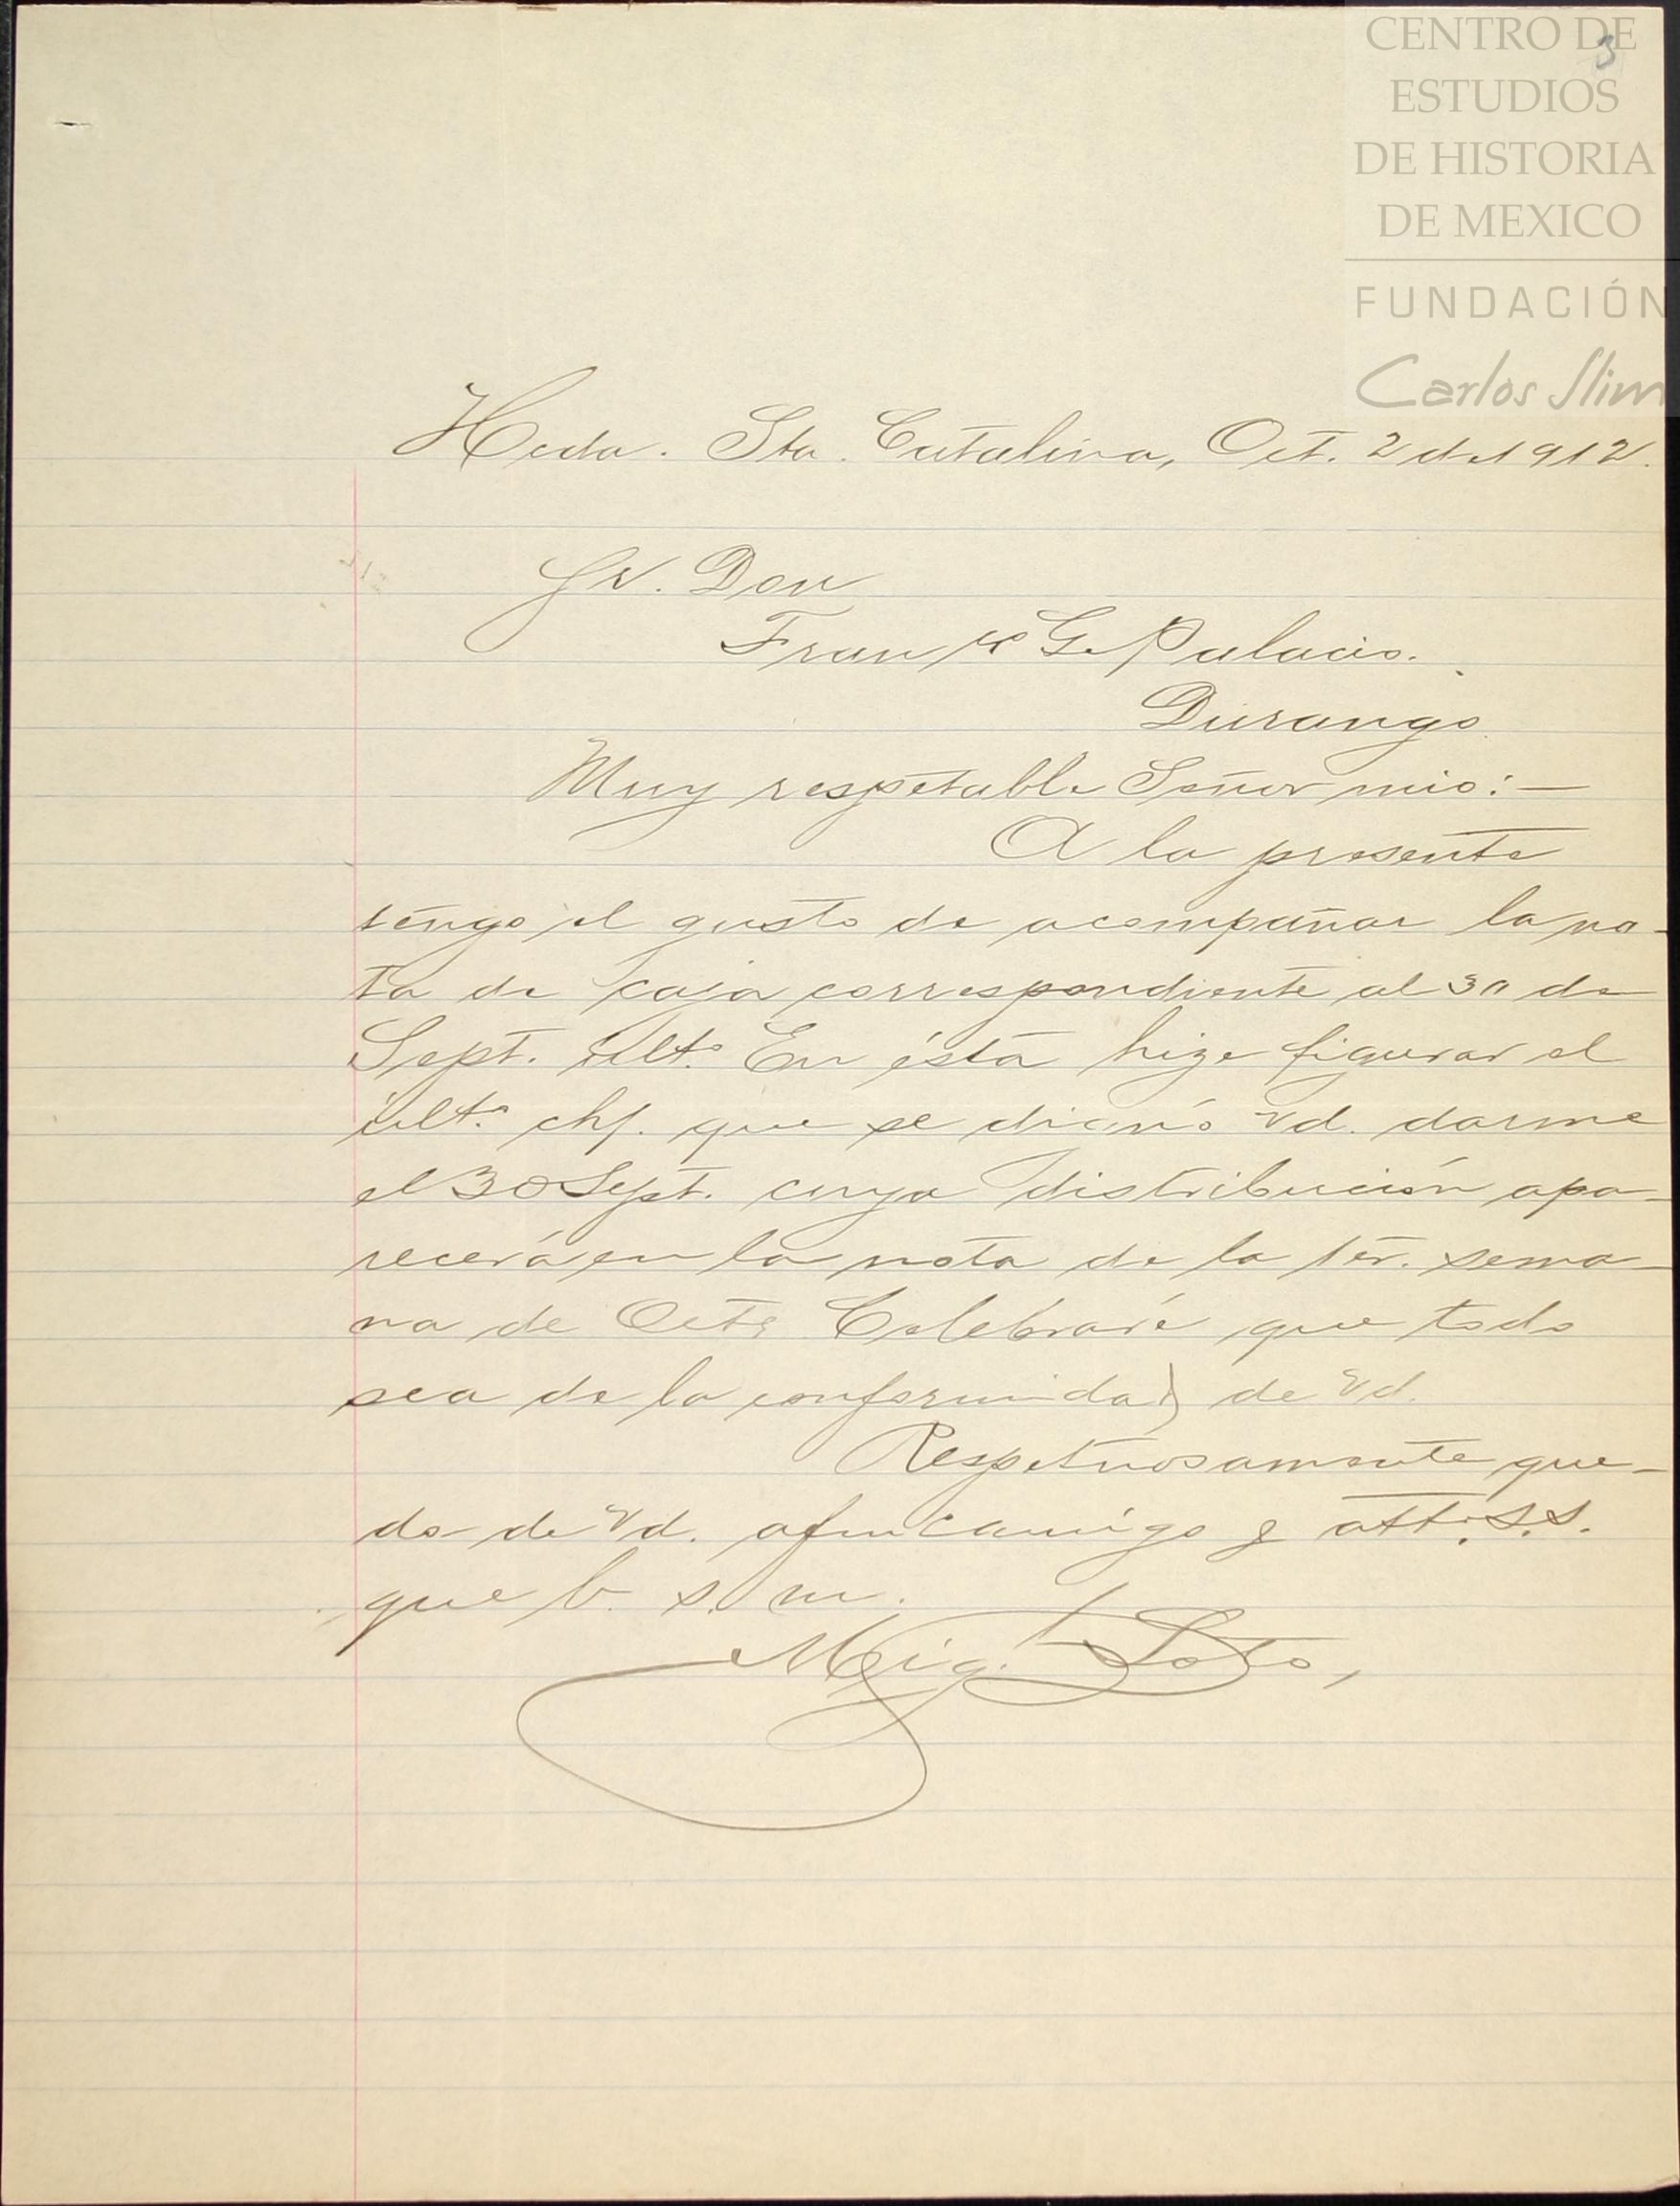 CENTRO DE
ESTUDIOS
DE HISTORIA
DE MEXICO
FUNDACIÓN
Carlos Slim
3
Hcda. Sta. Catalina, Oct. 2 de 1912.
Sr. Don
Franco G. Palacio.
Durango
Muy respetable Señor mio:—
A la presente
tengo el gusto de acompañar la no-
ta de caja correspondiente al 30 de
Sept. últo. En ésta hize figurar el
últo. ch/. que se dignó Vd. darme
el 30 Sept. cuya distribución apa-
recerá en la nota de la 1er. sema-
na de Octe Celebraré que todo
sea de la conformidad de Vd.
Respetuosamente que-
do de Vd. afmo amigo y atto. S.S.
que b. s. m.
Mig. Soto,